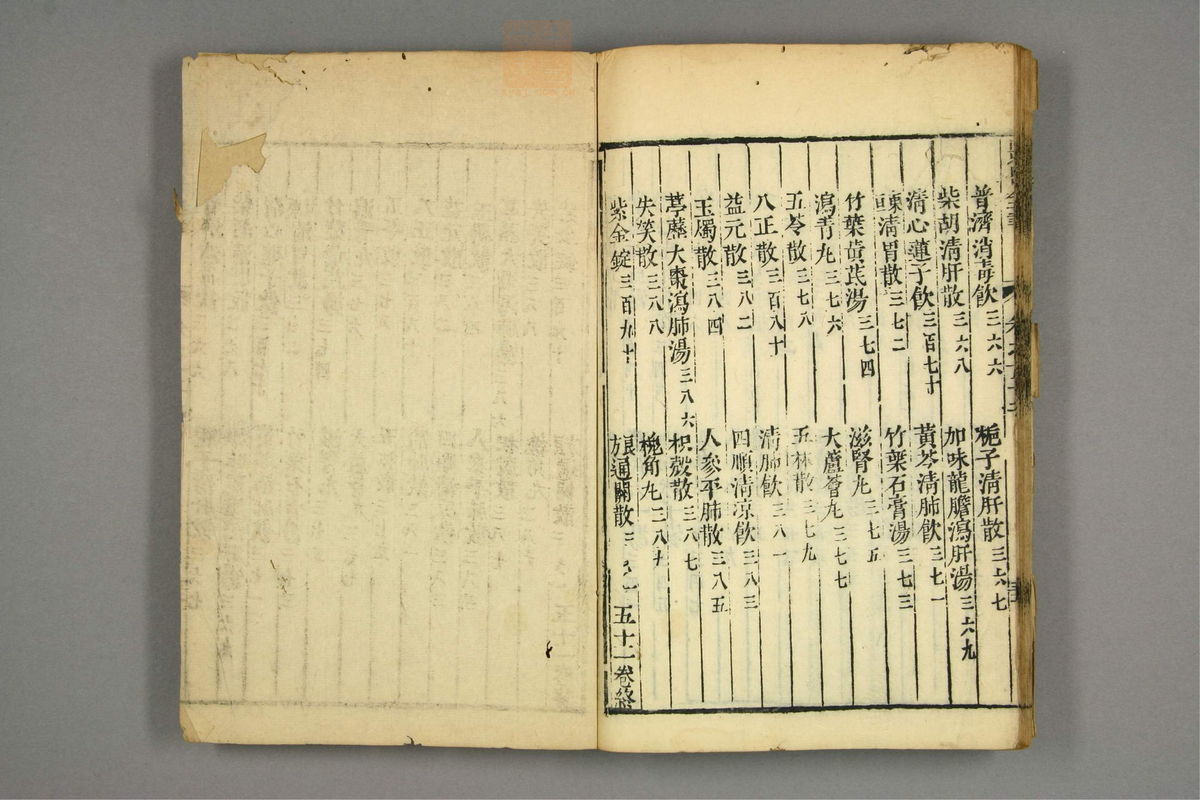 普濟消毒飲三六六 梔子清肝散三六七
柴胡清肝散三六八 加味龍膽瀉肝湯三六九
清心蓮子飲三百七十 黃芩清肺飲三七一
東清胃散三七二 竹葉石膏湯三七三
竹葉黃芪湯三七四 滋腎丸三七五
瀉青丸三七六 大蘆薈丸三七七
五苓散三七八 五淋散三七九
八正散三百八十 清肺飲三八一
益元散三八二 四順清凉飲三八三
玉燭散三八四 人參平肺散三八五
葶藶大棗瀉肺湯三八六 枳殼散三八七
失笑散三八八 槐角丸三八九
紫金錠三百九十 良方通關散三九一 五十二卷終